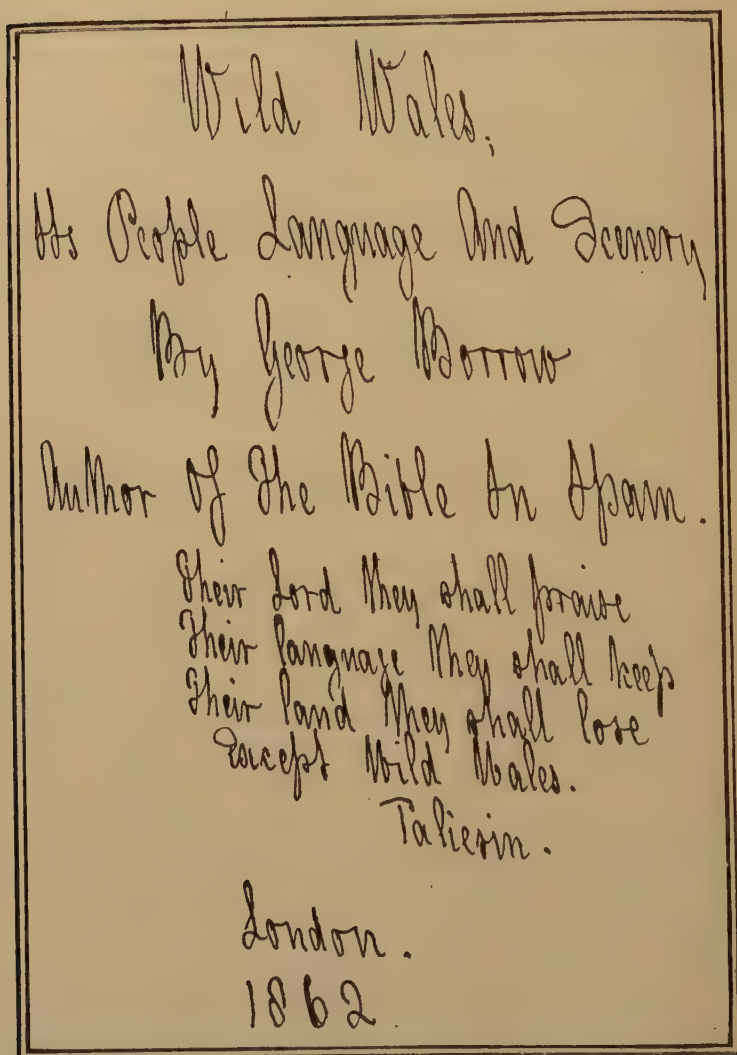 Wild Wales;
Its People Language And Scenery
By George Borrow
Author Of The Bible In Spain.
Their Lord they shall praise
Their language they shall keep
Their land they shall lose
Except Wild Wales.
Taliesin.
London.
1862